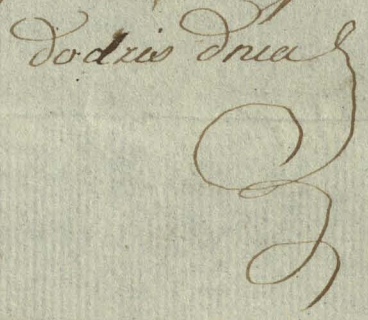 do dzis dnia